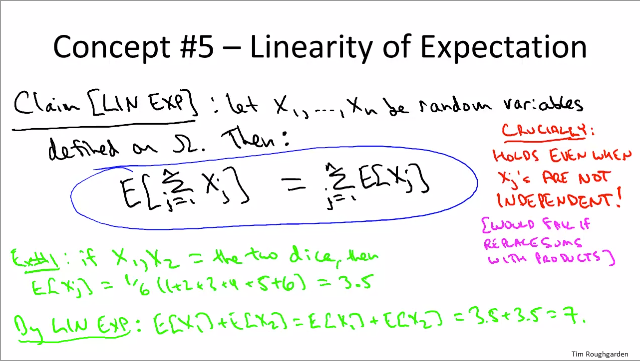 Concept #5 – Linearity of Expectation
Claim [LIN EXP] : let X₁,...,Xₙ be random variables
defined on Ω. Then :
E[∑ⁿⱼ₌₁ Xⱼ] = ∑ⁿⱼ₌₁ E[Xⱼ]
CRUCIALLY:
HOLDS EVEN WHEN
Xj's ARE NOT
INDEPENDENT!
[WOULD FAIL IF
REPLACE SUMS
WITH PRODUCTS]
Ex#1: if X₁, X₂ = the two dice, then
E[Xj] = 1/6 (1+2+3+4+5+6) = 3.5
By LIN EXP: E[X₁)+E[X₂) = E[X₁) + E[X₂) = 3.5+3.5 = 7.
Tim Roughgarden